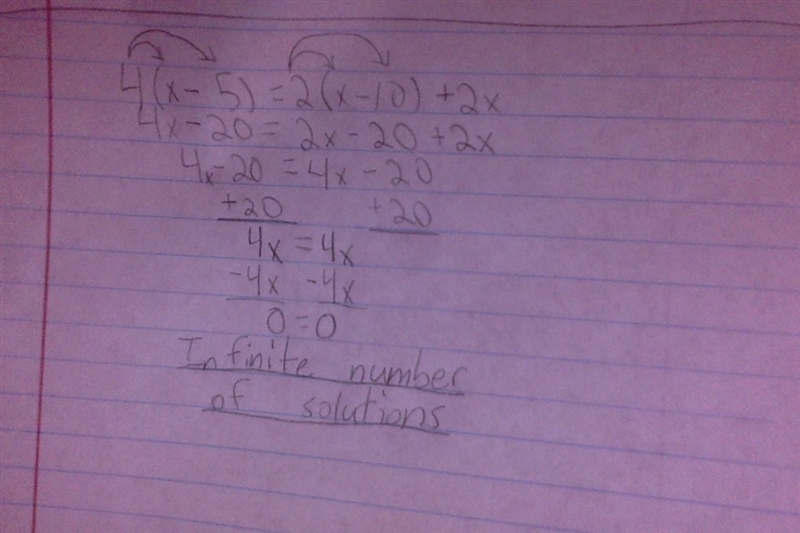 4(x-5) = 2(x-10) +2x
4x-20 = 2x-20 +2x
4x-20 = 4x-20
+20 +20
4x = 4x
-4x -4x
0=0
Infinite number
of solutions